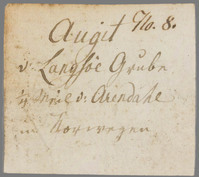 Augit No. 8.
v. Langsöe Grube
¼ Meil v. Arendahl
in Norwegen